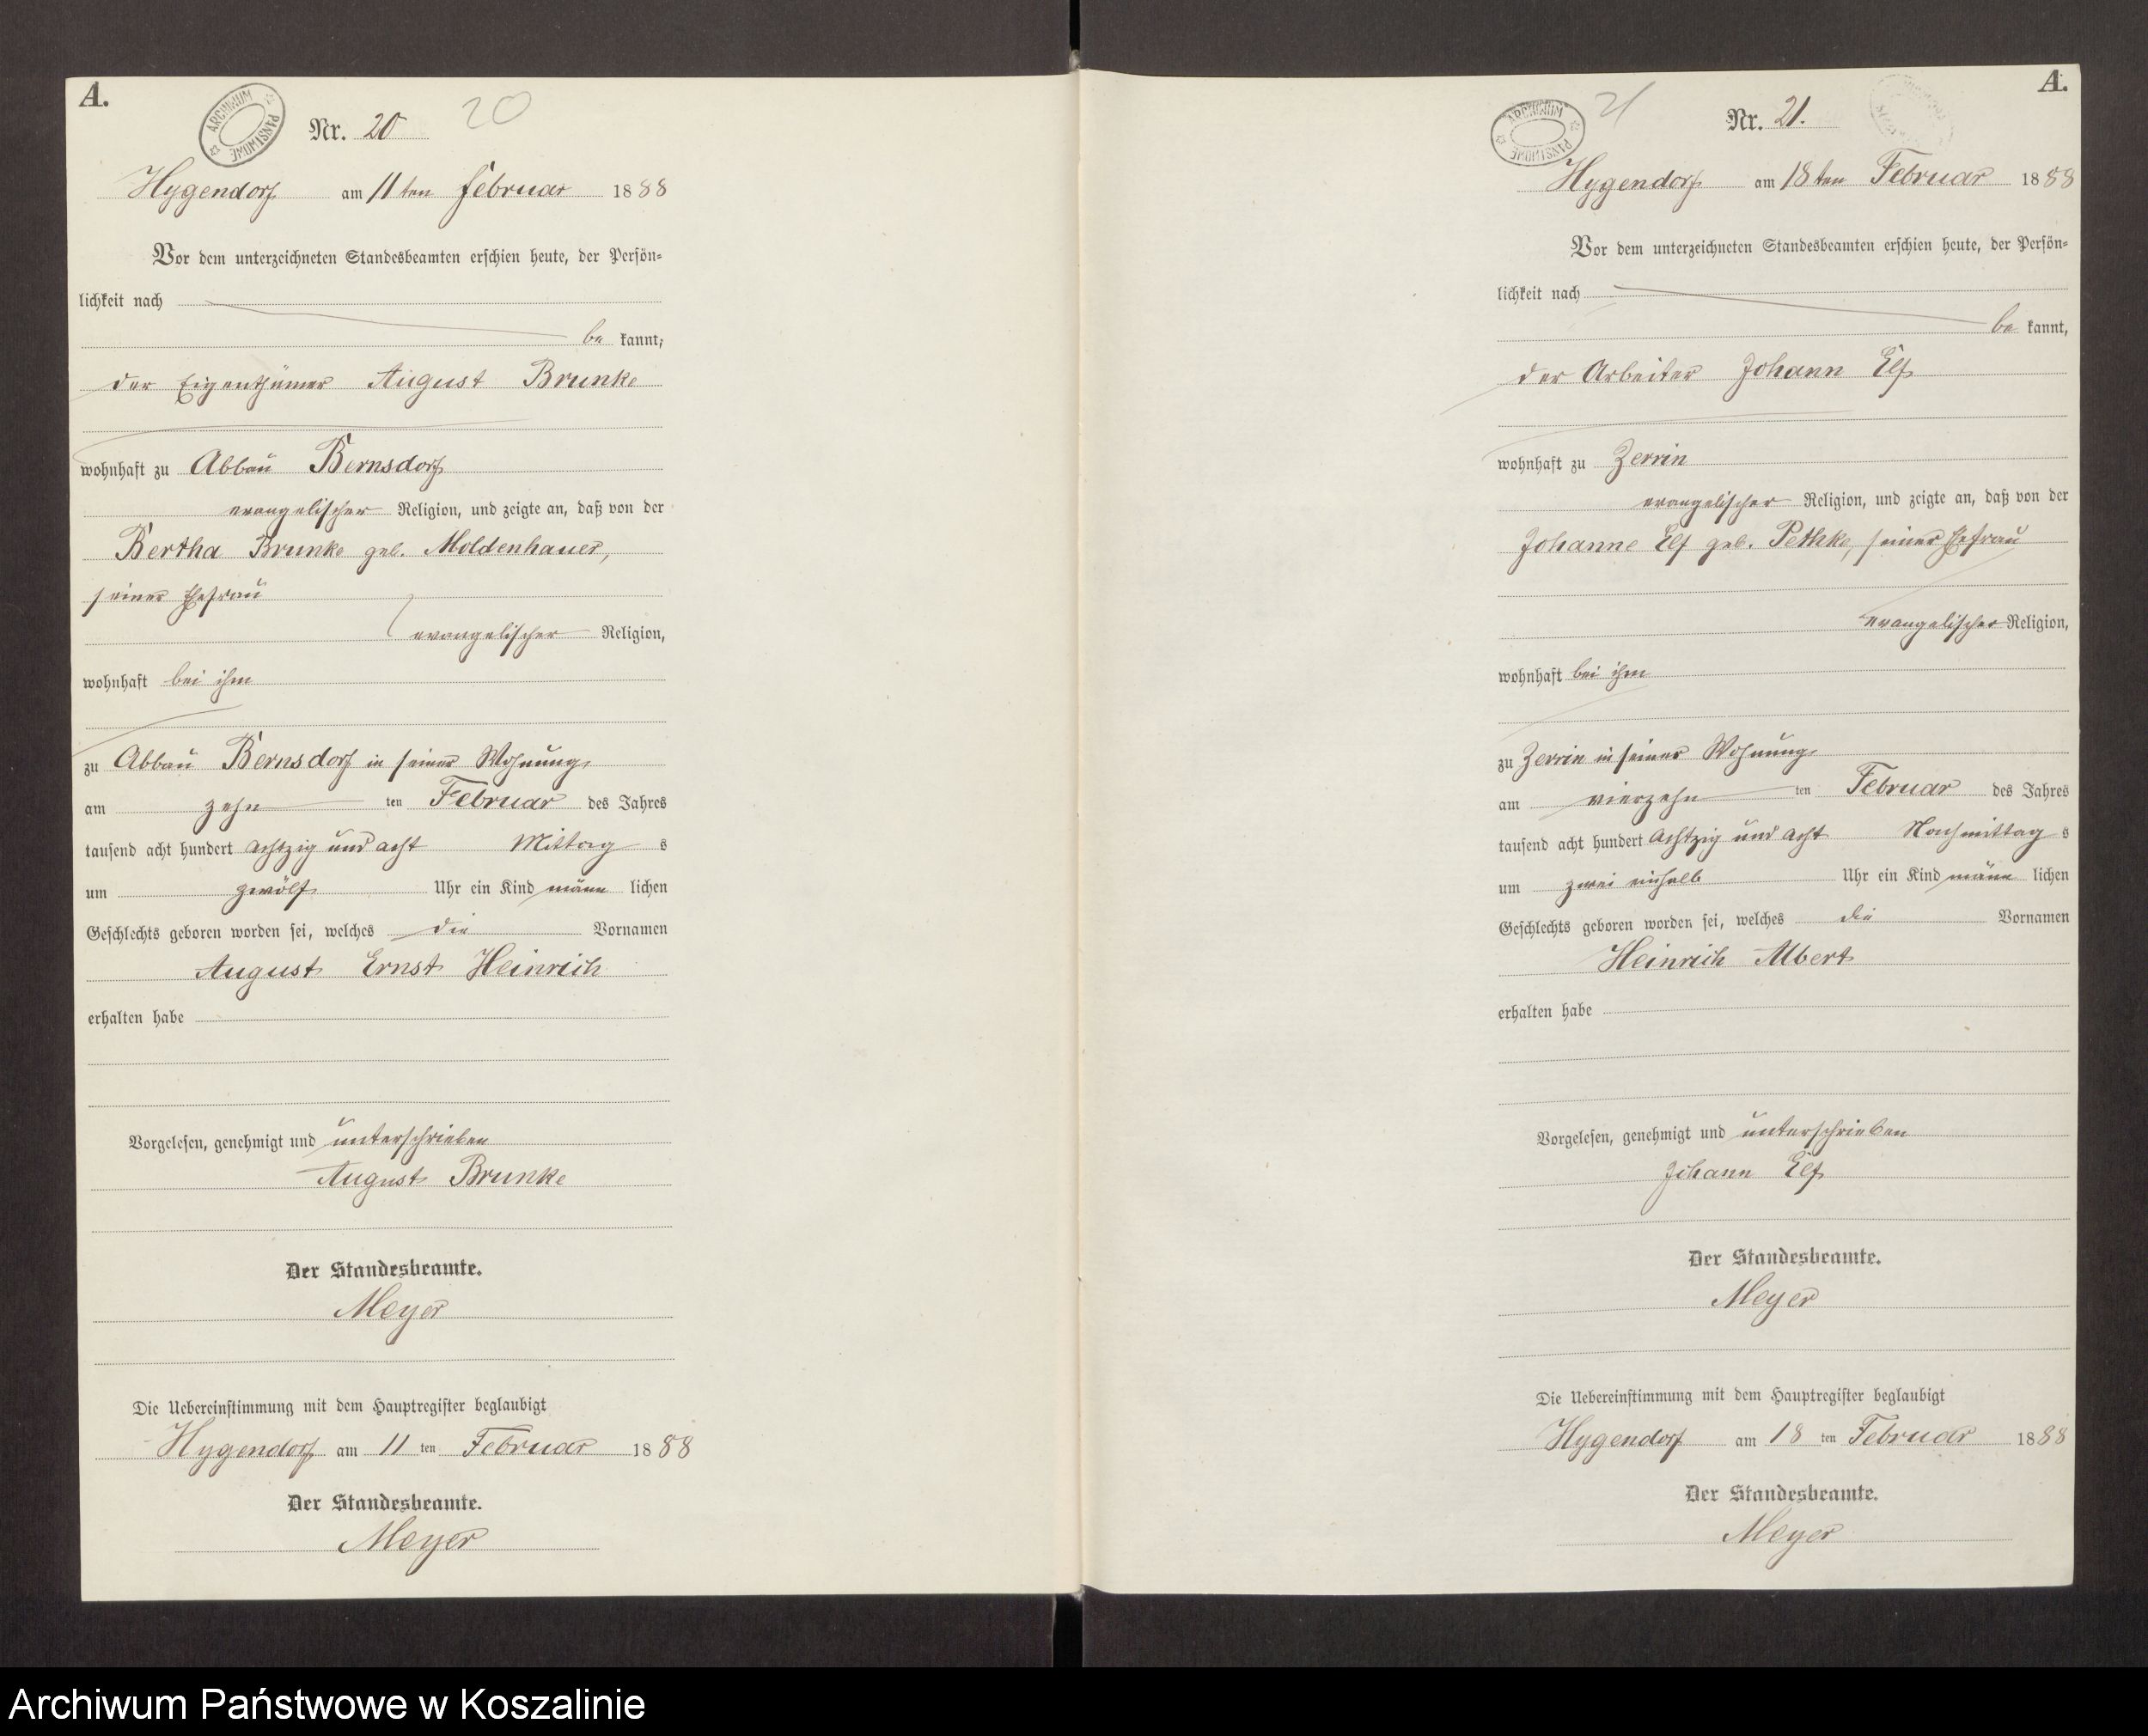 A.
ARCHIWUM PAŃSTWOWE
Nr. 20
20
Hygendorf am 11ten Februar 1888
Vor dem unterzeichneten Standesbeamten erschien heute, der Persön-
lichkeit nach
be kannt,
der Eigenthümer August Brunke
wohnhaft zu Abbau Bernsdorf
evangelischer Religion, und zeigte an, daß von der
Bertha Brunke geb. Moldenhauer,
seiner Ehefrau
evangelischer Religion,
wohnhaft bei ihm
zu Abbau Bernsdorf in seiner Wohnung,
am zehn ten Februar des Jahres
tausend acht hundert achtzig und acht Mittag s
um zwölf Uhr ein Kind männ lichen
Geschlechts geboren worden sei, welches die Vornamen
August Ernst Heinrich
erhalten habe
Vorgelesen, genehmigt und unterschrieben
August Brunke
Der Standesbeamte.
Meyer
Die Uebereinstimmung mit dem Hauptregister beglaubigt
Hygendorf am 11 ten Februar 1888
Der Standesbeamte.
Meyer
A.
ARCHIWUM PAŃSTWOWE
21
Nr. 21.
Hygendorf am 18ten Februar 1888
Vor dem unterzeichneten Standesbeamten erschien heute, der Persön-
lichkeit nach
be kannt,
der Arbeiter Johann Elf
wohnhaft zu Zerrin
evangelischer Religion, und zeigte an, daß von der
Johanne Elf geb. Pethke, seiner Ehefrau
evangelischer Religion,
wohnhaft bei ihm
zu Zerrin in seiner Wohnung,
am vierzehn ten Februar des Jahres
tausend acht hundert achtzig und acht Nachmittag s
um zwei einhalb Uhr ein Kind männ lichen
Geschlechts geboren worden sei, welches die Vornamen
Heinrich Albert
erhalten habe
Vorgelesen, genehmigt und unterschrieben
Johann Elf
Der Standesbeamte.
Meyer
Die Uebereinstimmung mit dem Hauptregister beglaubigt
Hygendorf am 18 ten Februar 1888
Der Standesbeamte.
Meyer
Archiwum Państwowe w Koszalinie